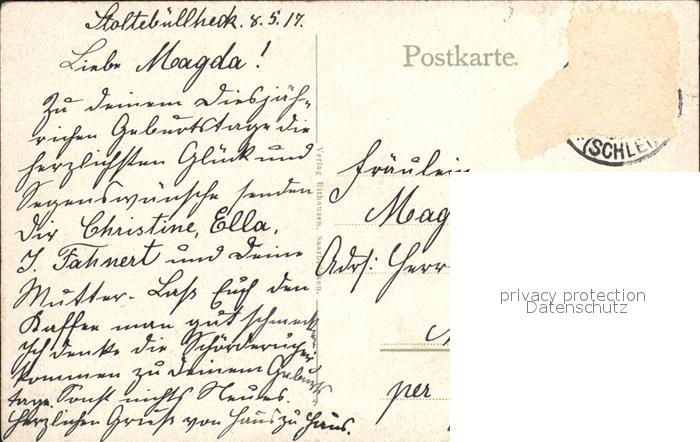 Stoltebüllheck. 8.5.17.
Liebe Magda!
Zu deinem diesjäh-
richen Geburtstage die
herzlichsten Glück und
Segenswünsche senden
Dir Christine, Ella,
J. Fahnert und Deine
Mutter. Laß Euch den
Kaffee man gut schmecken
Ich denke die
kommen zu deinem Geburts
tage. Sonst nichts Neues.
Herzlichen Gruß von Haus zu Haus.
Postkarte.
(SCHLE
Verlag Eithausen, Saarbrücken.
Fräulein
Mag
Adrs: Herr
per
privacy protection
Datenschutz